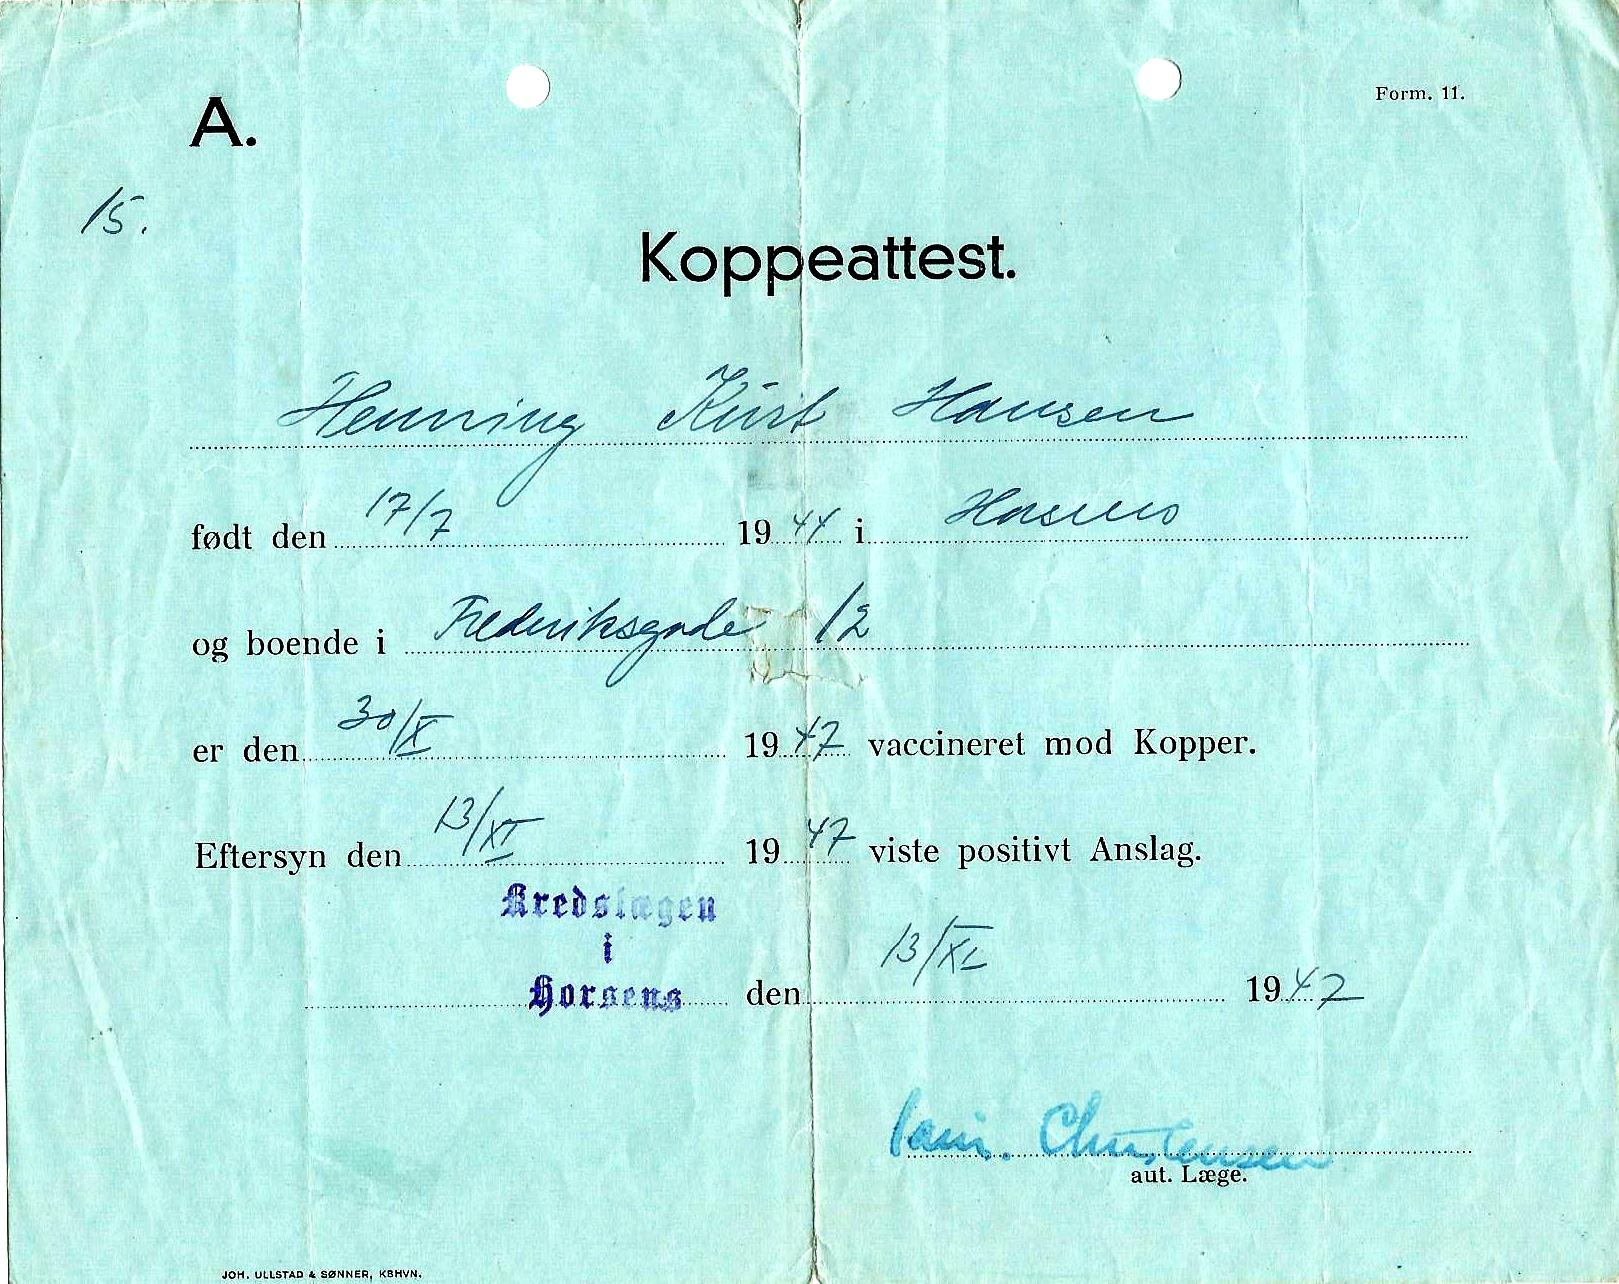 A.
Form. 11.
15.
Koppeattest.
Henning Kurt Hansen
født den 17/7 1944 i Horsens
og boende i Frederiksgade 12
er den 30/X 1947 vaccineret mod Kopper.
Eftersyn den 13/XI 1947 viste positivt Anslag.
Kredslægen
i
Horsens den 13/XI 1947
Christensen
aut. Læge.
JOH. ULLSTAD & SØNNER, KBHVN.